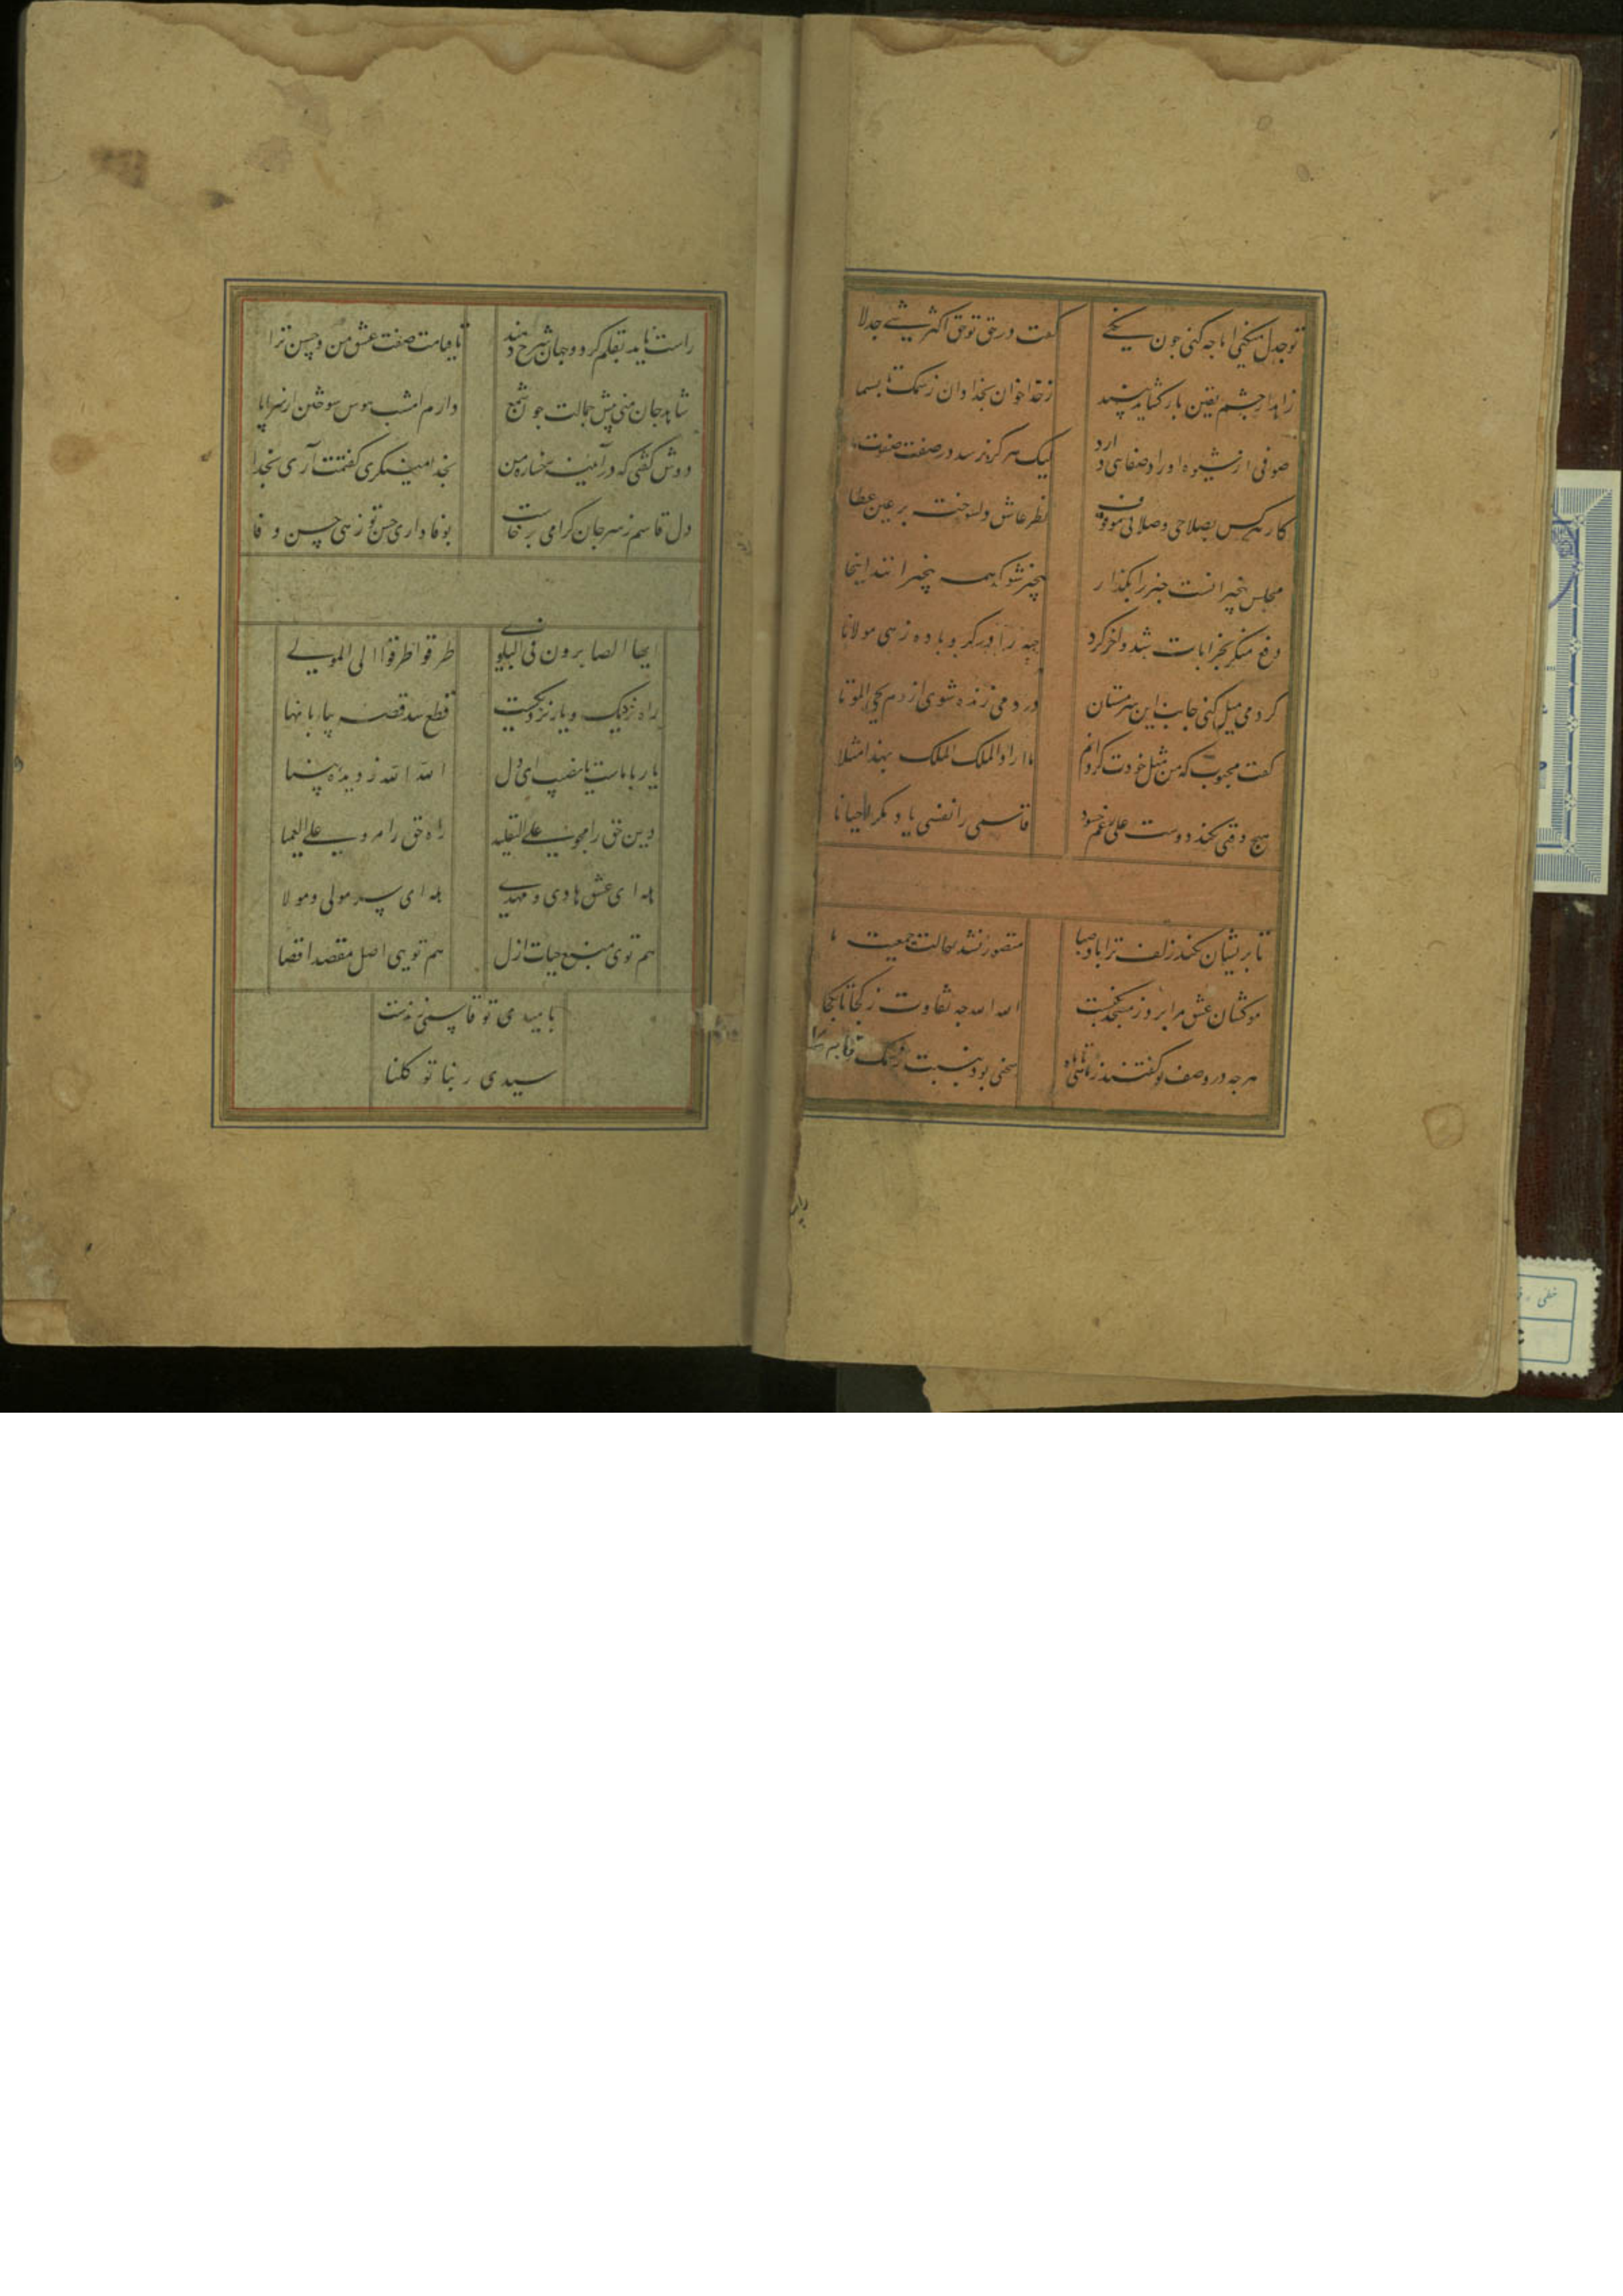 توجدل میکنی اما جه کنی جون نکنی
کفت در حق تو حق اکثر شیی جدلا
زاهد ار جشم یقین باز کشاید بیند
صوفی از شیوه اوراد صفایی دارد
لیک هرکز نرسد در صفت صفوت ما
کار هر کس بصلاحی و صلایی موقوف
نظر عاشق دلسوخته بر عین عطا
مجلس بیخبرانست خبر را بکذار
بیخبر شو که همه بیخبرانند اینجا
شیخ منکر بخرابات شد و لخر کرد
جبه را در کرو باده زهی مولانا
کر دمی میل کنی جانب این سرمستان
در دمی زنده شوی از دم یحیی الموتا
کفت محبوب که من مثل خودت کردانم
ما اراد الملک الملک بهذا مثلا
هیج وقتی نکند دوست علی رغم حسود
قاسمی را نفسی یاد مکر احیانا
تا بریشان نکند زلف ترا باد صبا
متصور نشد حالت جمعیت ما
موکشان عشق مرا برد ز مسجد بکنشت
الله الله جه تفاوت ز کجا تا بکجا
هرجه در وصف تو کفتند ز ماهی تا ماه
سخنی بود بنسبت ز سمک تا بسما
راست
راست ناید بقلم کر دو جهان شرح دهند
تا قیامت صفت عشق من و حسن ترا
شاهد جان منی پیش جمالت جون شمع
دارم امشب هوس سوختن از سر تا پا
دوش کفتی که در آیینه رخساره من
بخدا مینکری کفتمت آری بخدا
دل قاسم ز سر جان کرامی برخاست
بوفاداری حسن تو زهی حسن و وفا
ایها الصابرون فی البلوی
طرقوا طرقوا الی المولی
راه نزدیک و یار نزدیکست
قطع شد قصه بیابانها
یار با ماست یا نصیب ای دل
الله الله ز دیده بینا
دین حق را مجوی علی التقلید
راه حق را مرو علی العمیا
هله ای عشق هادی و مهدی
هله ای پیر مولی و مولا
هم توی منبع حیات ازل
هم تویی اصل مقصد اقصا
بامید تو قاسمی زندست
سیدی ربنا توکلنا